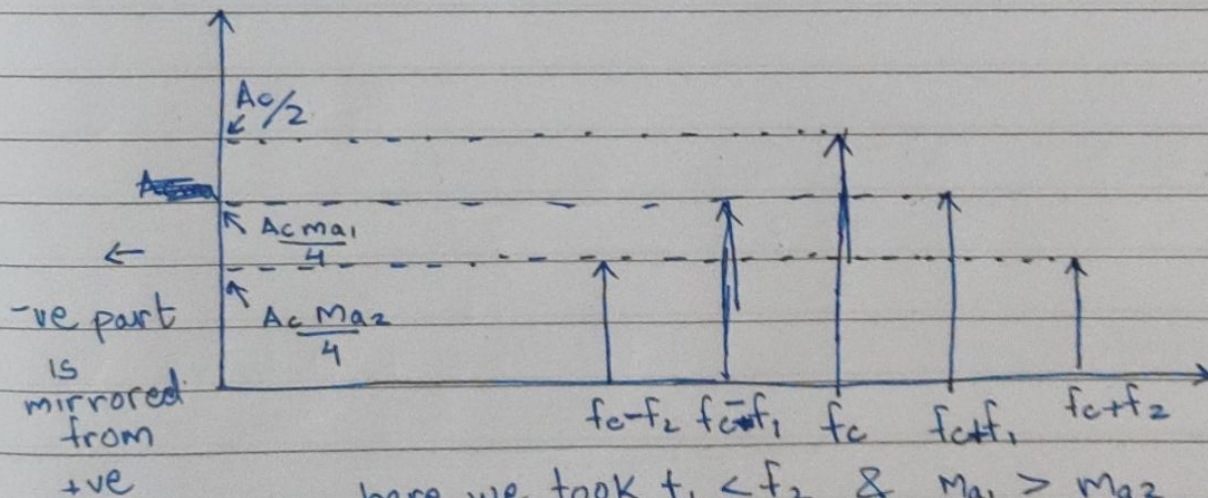 Ac/2
Ac ma1
4
←
-ve part
Ac ma2
4
is
mirrored
from
+ve
fc-f2 fc-f1 fc fc+f1 fc+f2
here we took f1 < f2 & ma1 > ma2